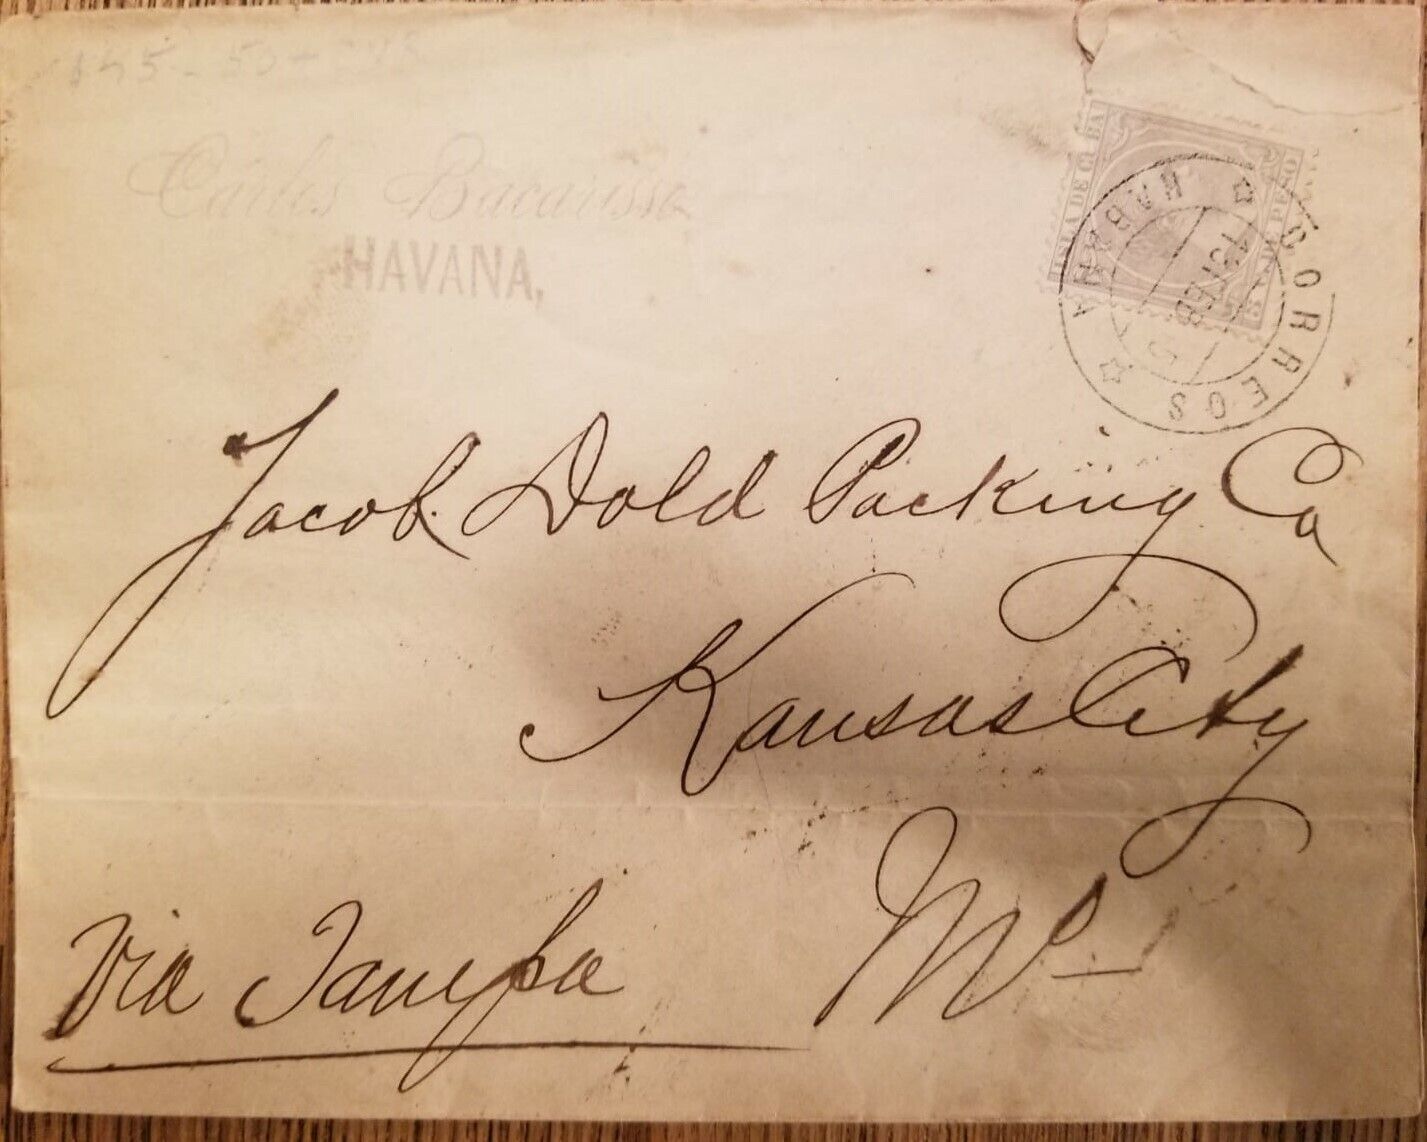 Carlos Bacarisse
HAVANA,
ISLA DE CUBA
DE PESO
CORREOS
HABANA
13 FEB
Jacob Dold Packing Co
Kansas City
Mo
Via Tampa